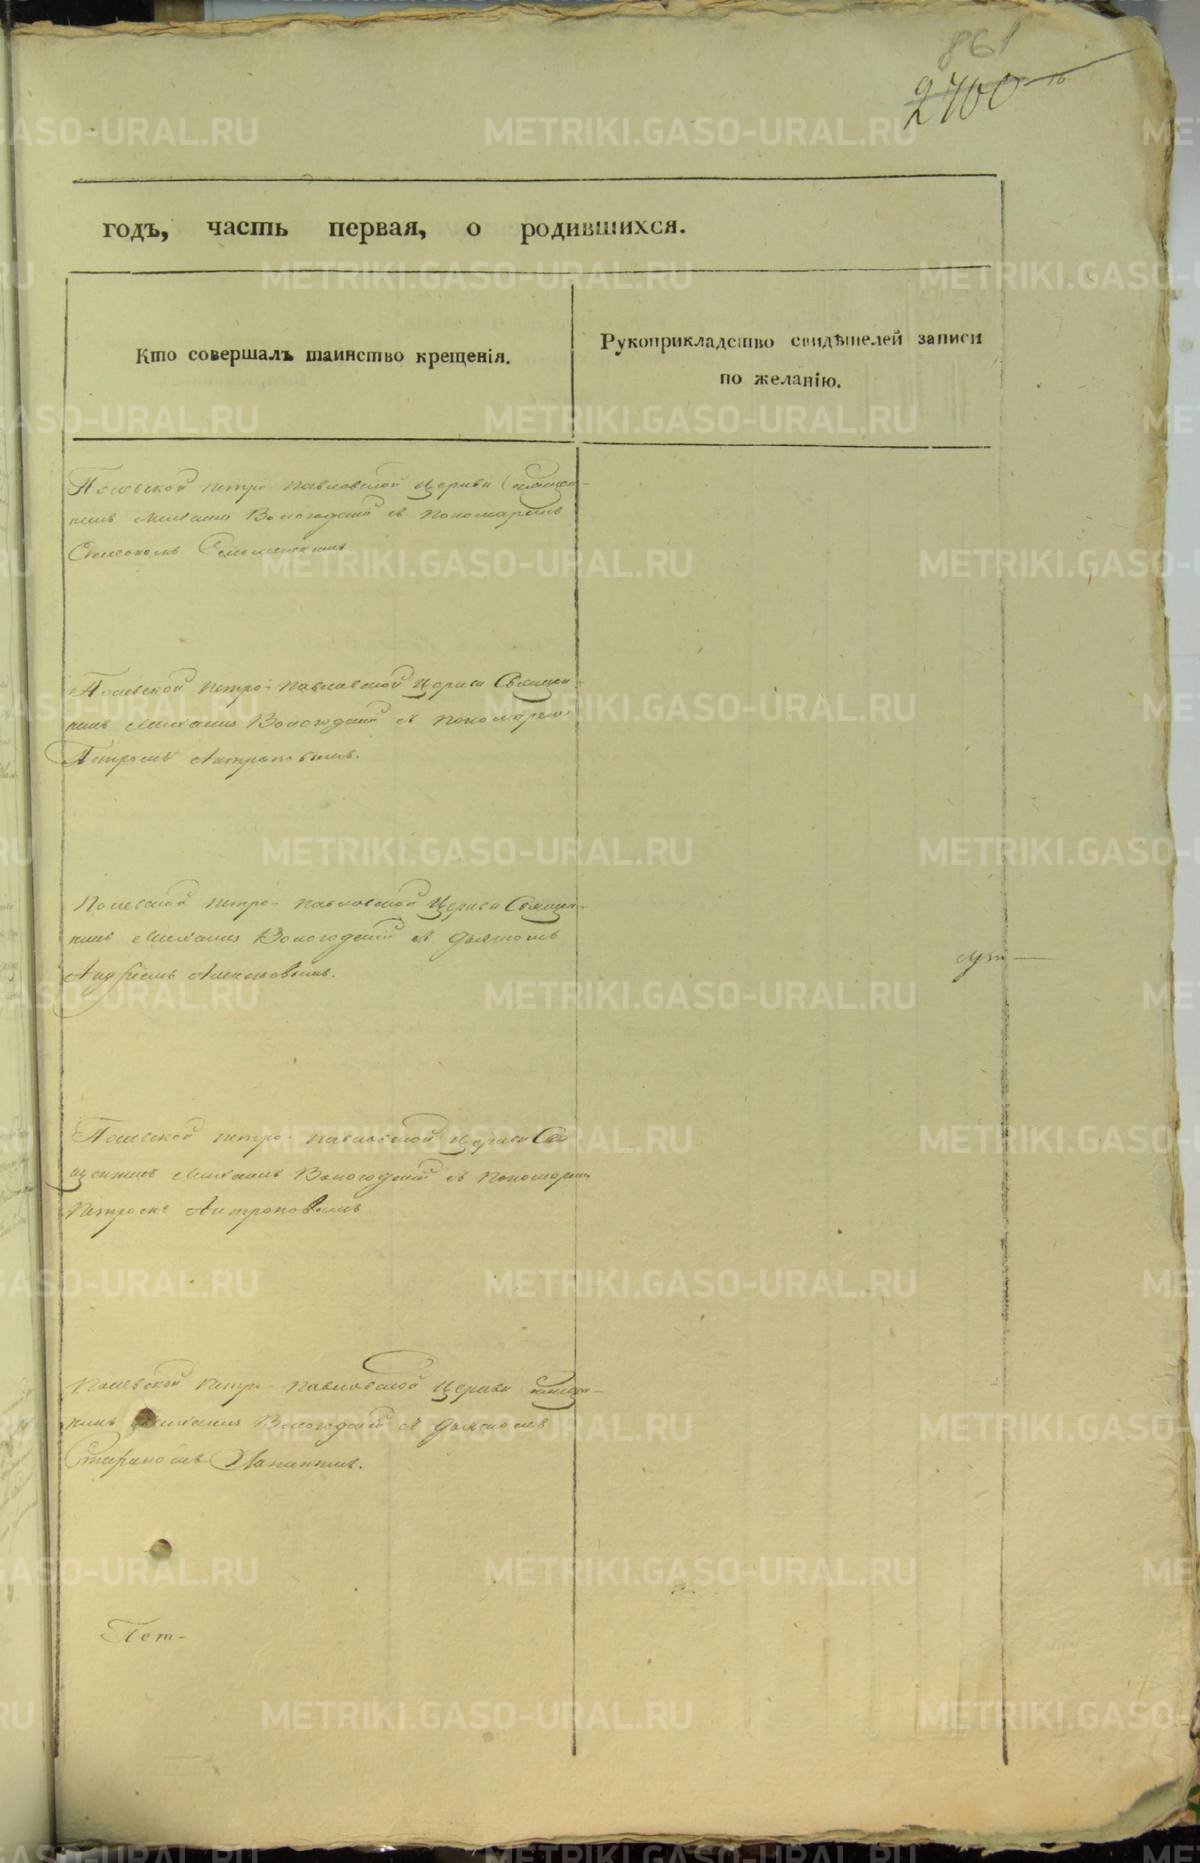 861
2700
годъ, часть первая, о родившихся.
Кто совершалъ таинство крещенія.
Рукоприкладство свидѣтелей записи
по желанію.
Полевской Петро-Павловской Церкви Священ-
никъ Михаилъ Вологодскій съ Пономаремъ
Симеономъ
Полевской Петро-Павловской Церкви Священ-
никъ Михаилъ Вологодскій съ Пономаремъ
Петромъ Антроповымъ.
Полевской Петро-Павловской Церкви Священ-
никъ Михаилъ Вологодскій съ Дьячкомъ
Андреемъ Алексѣевымъ.
Полевской Петро-Павловской Церкви Свя
щенникъ Михаилъ Вологодскій съ Пономаремъ
Петромъ Антроповымъ
Полевской Петро-Павловской Церкви Священ-
никъ Михаилъ Вологодскій съ Дьячкомъ
Стефаномъ
METRIKI.GASO-URAL.RU